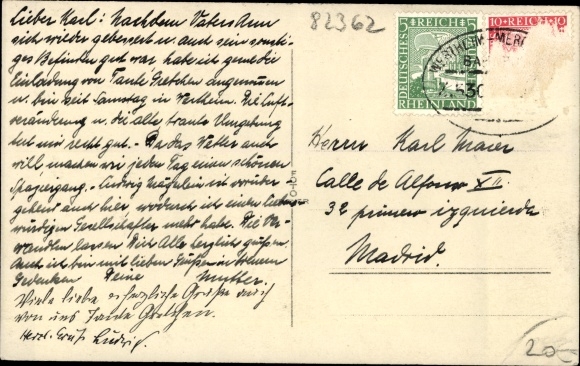 82362
Lieber Karl! Nachdem Vaters Arm
sich wieder gebessert u. auch sein sonsti-
ges Befinden gut war habe ich gerne die
Einladung von Tante Gretchen angenommen
u. bin seit Samstag in Wertheim. Die Luft-
veränderung u. die alte traute Umgebung
tut mir recht gut. - Da das Wetter auch
will machen wir jeden Tag einen schönen
Spaziergang. - Ludwig ist vorüber
gehend auch hier wodurch ich einen liebens-
würdigen Gesellschafter mehr habe. Die Ver-
wandten lassen Dich Alle herzlich grüßen.
Auch ich bin mit lieben Grüßen in treuem
Gedenken Deine Mutter.
Viele liebe herzliche Grüße auch
von uns Tante Gretchen.
Herzl. Gruß Ludwig.
5 REICH 5
DEUTSCHES
RHEINLAND
10 REICH 10
WERTHEIM
Herrn Karl Maier
Calle de Alfonso XII
32 primero izquierda
Madrid.
20-